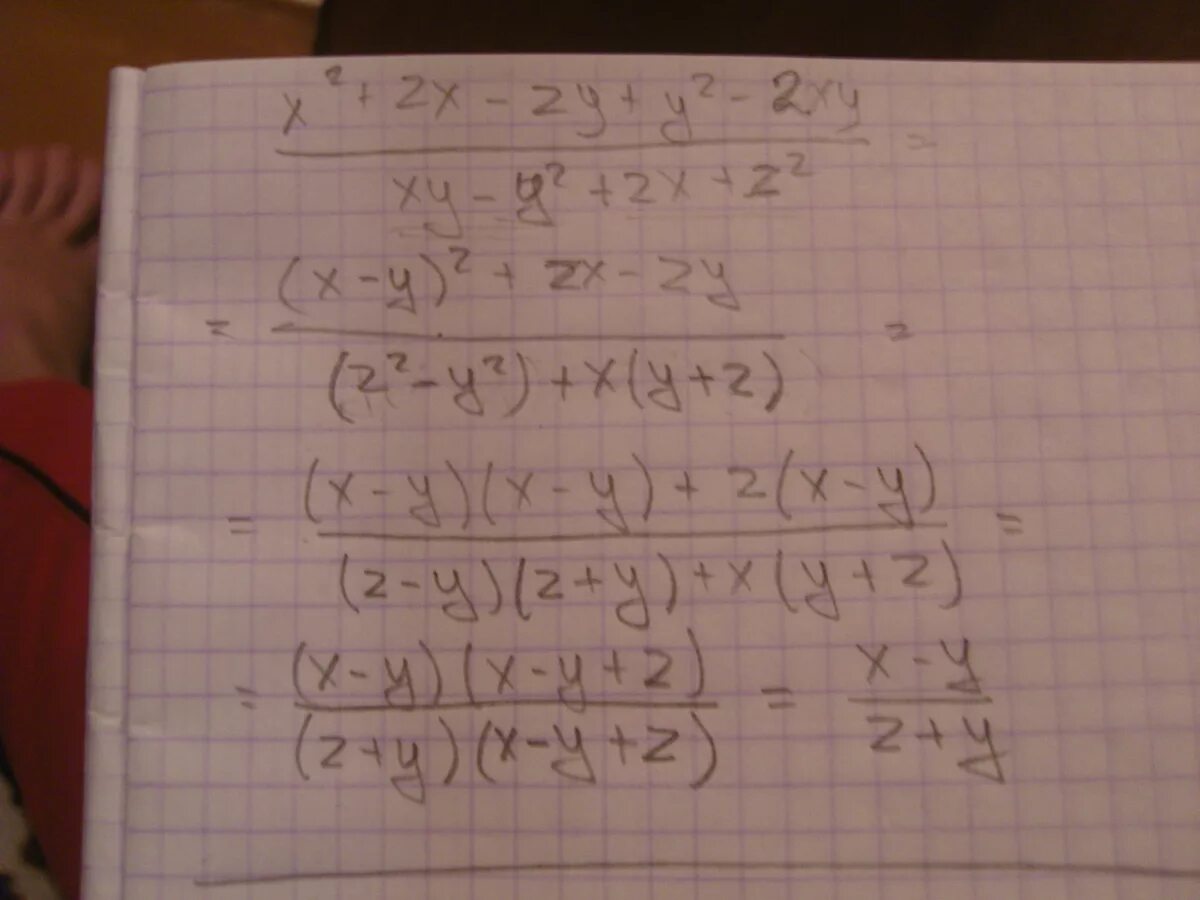 x² + zx - zy + y² - 2xy
xy - y² + zx + z² =
= (x - y)² + zx - zy
(z² - y²) + x(y + z) =
= (x - y)(x - y) + z(x - y)
(z - y)(z + y) + x(y + z) =
= (x - y)(x - y + z)
(z + y)(x - y + z) = x - y
z + y